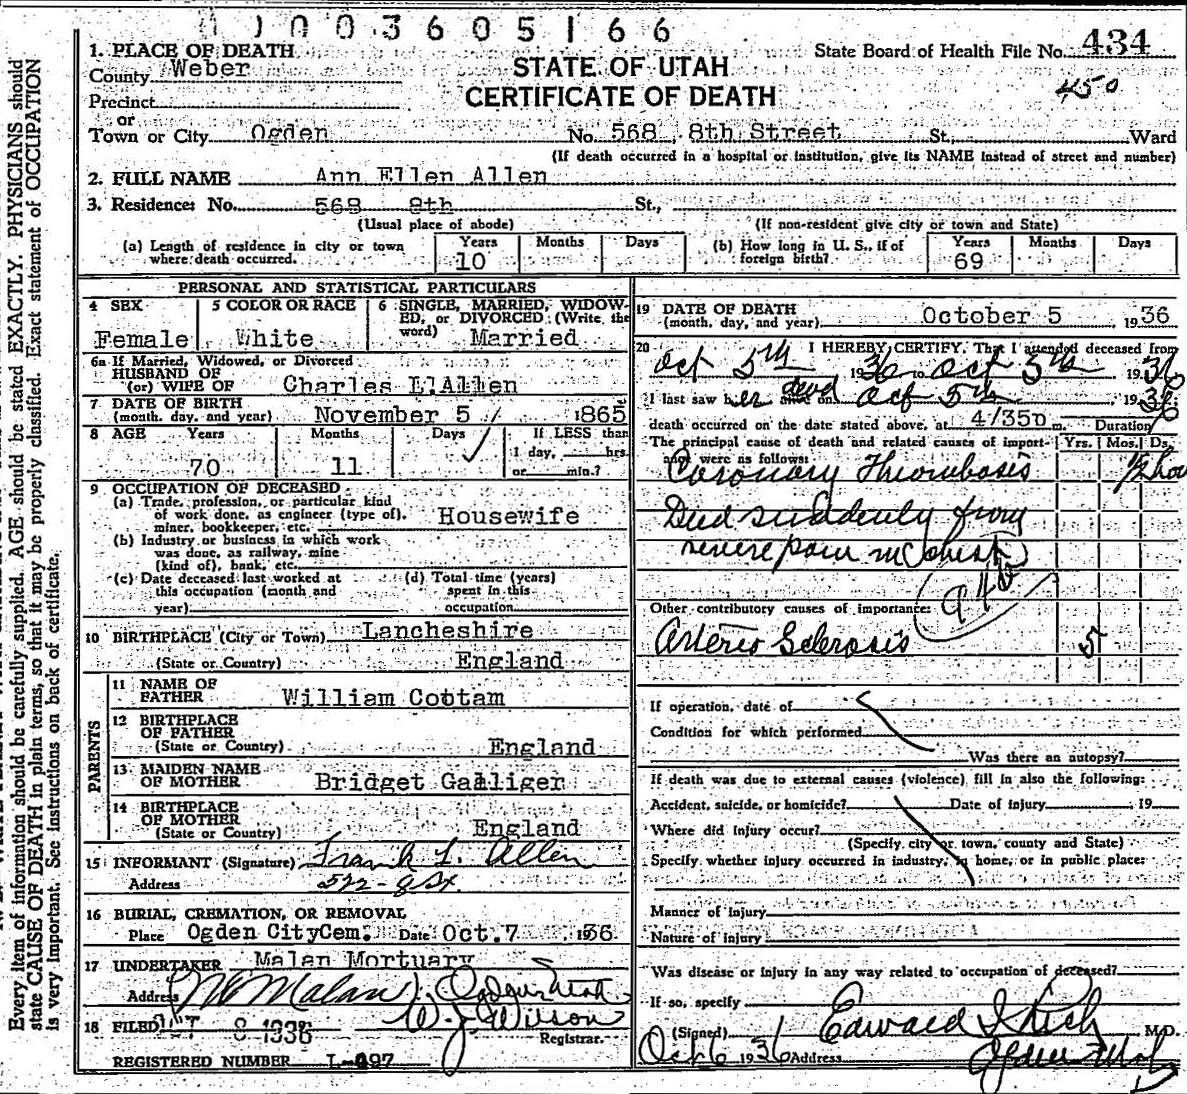 003605166
1. PLACE OF DEATH
State Board of Health File No. 434
County Weber
STATE OF UTAH
450
Precinct
CERTIFICATE OF DEATH
or
Town or City Ogden No. 568 8th Street St., Ward
(If death occurred in a hospital or institution, give its NAME instead of street and number)
2. FULL NAME Ann Ellen Allen
3. Residence: No. 568 8th St.,
(Usual place of abode) (If non-resident give city or town and State)
(a) Length of residence in city or town where death occurred. Years 10 Months Days
(b) How long in U. S., if of foreign birth? Years 69 Months Days
PERSONAL AND STATISTICAL PARTICULARS
4 SEX Female
5 COLOR OR RACE White
6 SINGLE, MARRIED, WIDOWED, or DIVORCED (Write the word) Married
6a If Married, Widowed, or Divorced
HUSBAND OF
(or) WIFE OF Charles L Allen
7 DATE OF BIRTH
(month, day, and year) November 5 1865
8 AGE Years 70 Months 11 Days
If LESS than
1 day, hrs.
or min.?
9 OCCUPATION OF DECEASED
(a) Trade, profession, or particular kind
of work done, as engineer (type of),
miner, bookkeeper, etc. Housewife
(b) Industry or business in which work
was done, as railway, mine
(kind of), bank, etc.
(c) Date deceased last worked at
this occupation (month and
year)
(d) Total time (years)
spent in this
occupation
10 BIRTHPLACE (City or Town) Lancheshire
(State or Country) England
PARENTS
11 NAME OF
FATHER William Cottam
12 BIRTHPLACE
OF FATHER
(State or Country) England
13 MAIDEN NAME
OF MOTHER Bridget Galliger
14 BIRTHPLACE
OF MOTHER
(State or Country) England
15 INFORMANT (Signature) Frank L. Allen
Address 522-8 St
16 BURIAL, CREMATION, OR REMOVAL
Place Ogden City Cem. Date Oct. 7 1936
17 UNDERTAKER Malan Mortuary
Address Malan Ogden Utah
18 FILED OCT 8 1936 W. J. Wilson
Registrar.
REGISTERED NUMBER L-097
19 DATE OF DEATH
(month, day, and year) October 5, 1936
20 I HEREBY CERTIFY, That I attended deceased from
Oct 5th 1936 to Oct 5th 1936
I last saw her dead alive on Oct 5th, 1936;
death occurred on the date stated above, at 4/35p m. Duration
The principal cause of death and related causes of importance were as follows: Yrs. Mos. Ds.
Coronary Thrombosis 1/2 hou
Died suddenly from
severe pain in chest
94b
Other contributory causes of importance:
Arterio Sclerosis 5
If operation, date of
Condition for which performed
Was there an autopsy?
If death was due to external causes (violence) fill in also the following:
Accident, suicide, or homicide? Date of injury 19
Where did injury occur?
(Specify city or town, county and State)
Specify whether injury occurred in industry, in home, or in public place:
Manner of injury
Nature of injury
Was disease or injury in any way related to occupation of deceased?
If so, specify
(Signed) Edward I Rich M.D.
Oct 6 1936 Address Ogden Utah
Every item of information should be carefully supplied. AGE should be stated EXACTLY. PHYSICIANS should
state CAUSE OF DEATH in plain terms, so that it may be properly classified. Exact statement of OCCUPATION
is very important. See instructions on back of certificate.